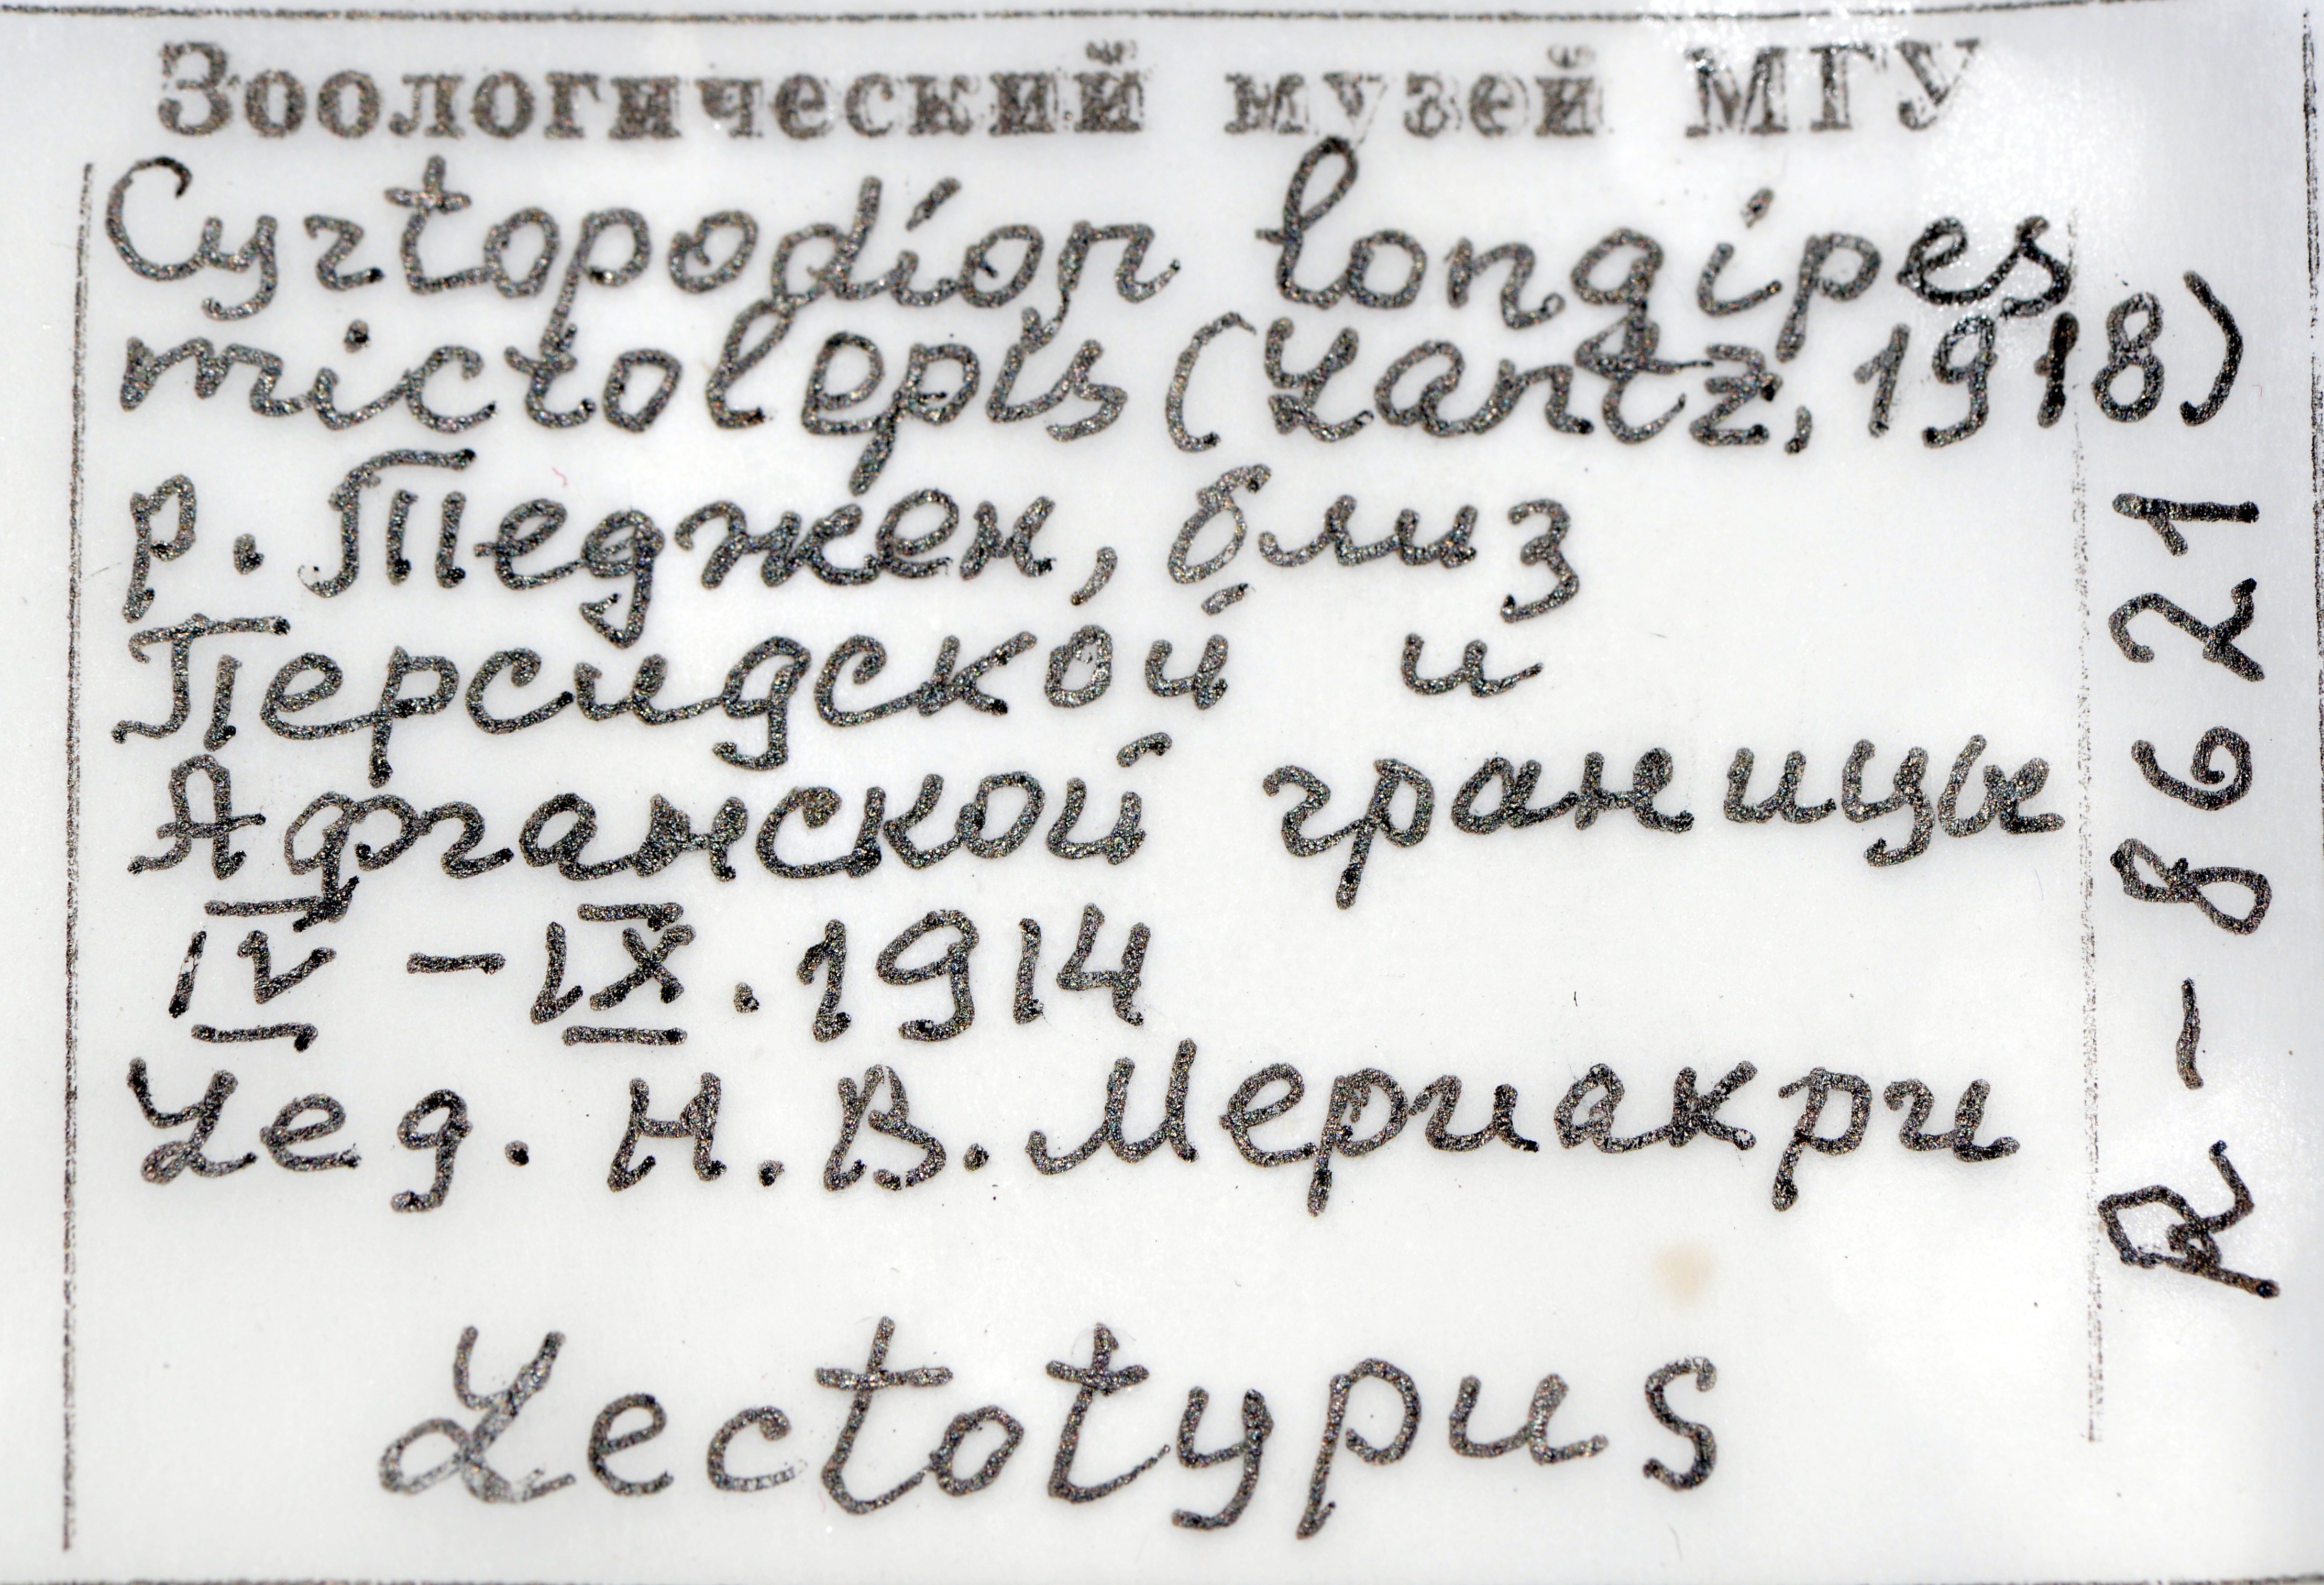 Зоологический музей МГУ
Cyrtopodion longipes
mictolepis (Lantz, 1918)
р. Теджен, близ
Персидской и
Афганской границы
IV - IX. 1914
Leg. Н. В. Мериакри
Lectotypus
R - 8621